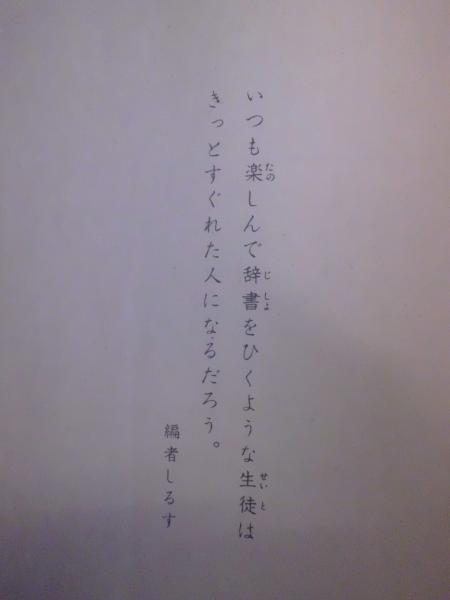 いつも楽しんで辞書をひくような生徒は
きっとすぐれた人になるだろう。
編者しるす